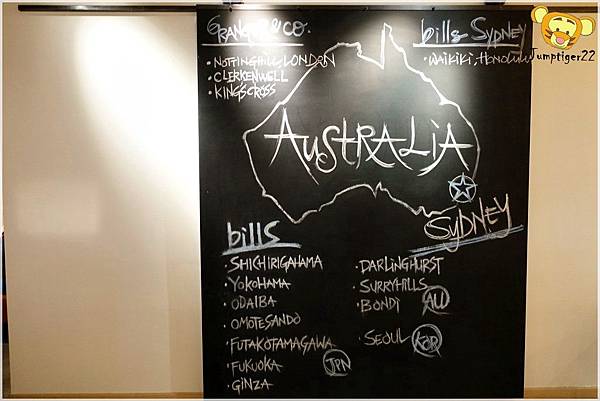 GRANGER & CO.
· NOTTINGHILL, LONDON
· CLERKENWELL
· KING'S CROSS
bills SYDNEY
· WAIKIKI, HONOLULU
Jumptiger22
AUSTRALIA
SYDNEY
bills
· SHICHIRIGAHAMA
· YOKOHAMA
· ODAIBA
· OMOTESANDO
· FUTAKOTAMAGAWA
· FUKUOKA
· GINZA
JPN
· DARLINGHURST
· SURRYHILLS
· BONDI
AU
· SEOUL
KOR